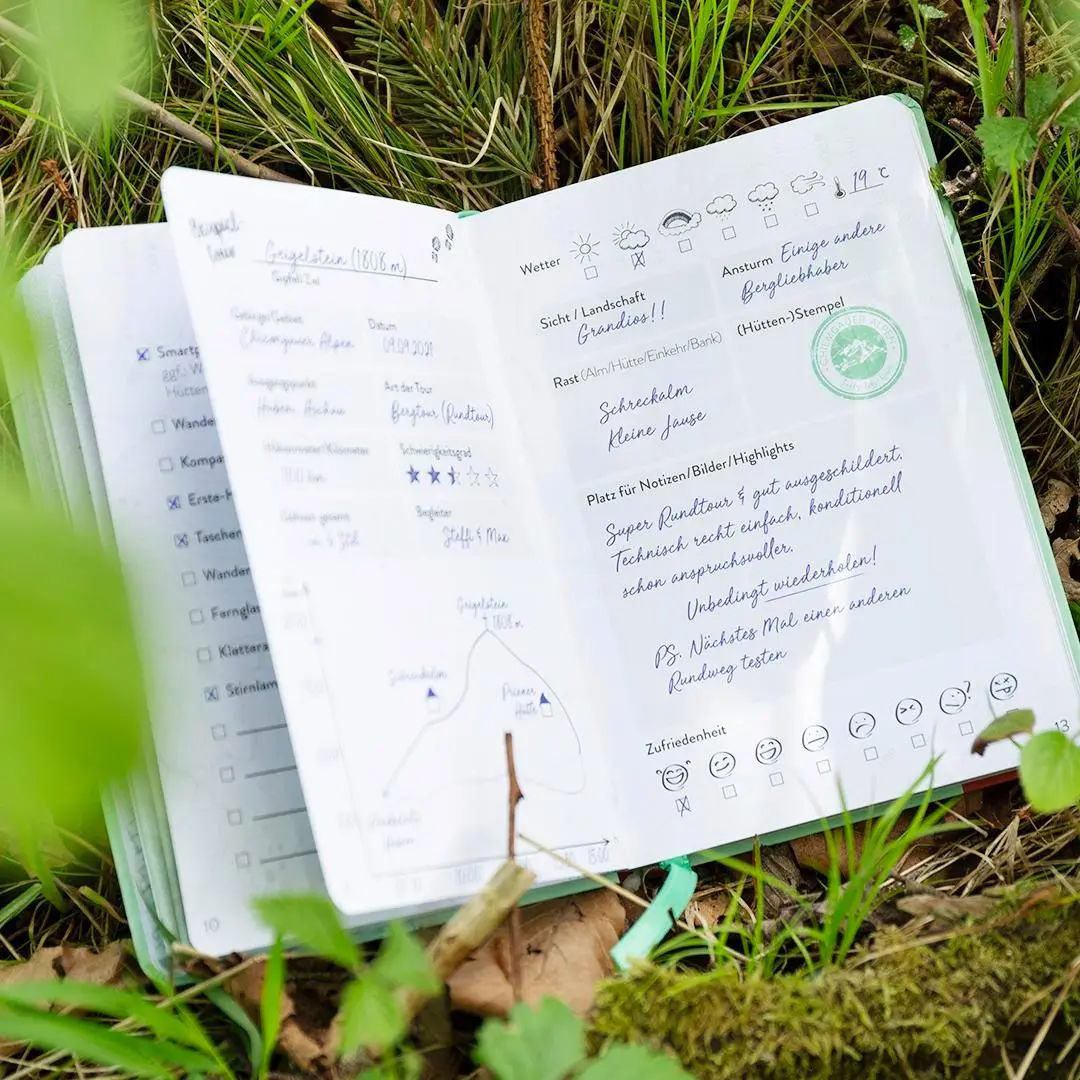 Smartp
ggf.: W
Hütten
Wande
Kompa
Erste-H
Taschen
Wander
Fernglas
Kletters
Stirnlam
10
Beispiel-
Geigelstein (1808 m)
Gipfel/Ziel
Chiemgauer Alpen
Datum
09.09.2021
Art der Tour
Bergtour (Rundtour)
Höhenmeter/Kilometer
Schwierigkeitsgrad
Begleiter
Steffi & Max
Geigelstein
1808 m
Priener
Hütte
15:00
Wetter
19 °C
Sicht / Landschaft
Grandios!!
Ansturm Einige andere
Bergliebhaber
Rast (Alm/Hütte/Einkehr/Bank)
Schreckalm
Kleine Jause
(Hütten-)Stempel
CHIEMGAUER ALPEN
Platz für Notizen/Bilder/Highlights
Super Rundtour & gut ausgeschildert.
Technisch recht einfach, konditionell
schon anspruchsvoller.
Unbedingt wiederholen!
PS. Nächstes Mal einen anderen
Rundweg testen
Zufriedenheit
13